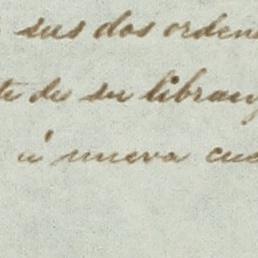 sus dos orden
te de su libran
a nueva cue